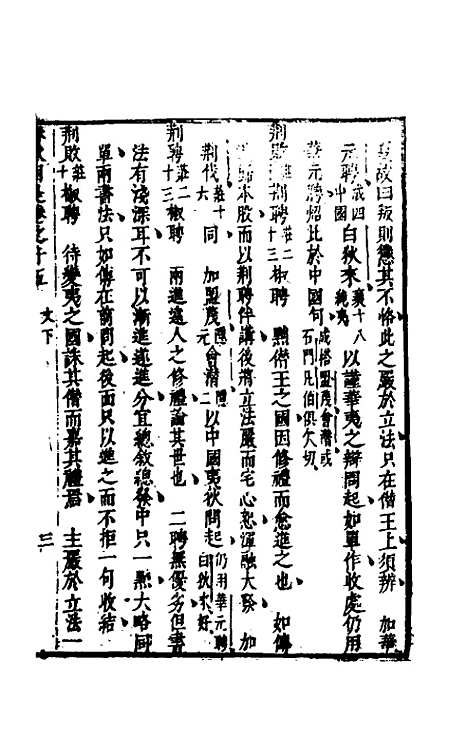 故曰叛則懲其不恪此之嚴於立法只在僣王上須辨 加華
元聘成四中國白狄來襄十八純夷以謹華夷之辯問起如單作收處仍用
華元聘紹比於中國句成搭盟茂會潛或石門凡伯俱欠切
荆敗莊十荆聘莊二十三椒聘 㸃僣王之國因修禮而愈進之也 如傳
歸本股而以荆聘伴講後溯立法嚴而宅心恕渾融大發 加
荆伐莊十六同 加盟茂隱元會潛隱二以中國夷狄問起仍用華元聘白狄來好
荆聘莊二十三椒聘 兩進遠人之修禮論其世也 二聘無優劣但書
法有淺深耳不可以漸進遞進分宜總敘總發中只一㸃大略同
單兩書法只如傳在前問起後面只以進之而不拒一句收結
荆敗莊十椒聘 待變夷之國誅其僣而嘉其禮焉 主嚴於立法一
文下
三